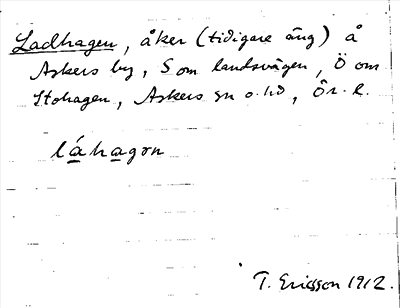 Ladhagen, åker (tidigare äng) å
Askers by, S om landsvägen, Ö om
Stohagen, Askers sn o. hd, Ör. l.
láhagon
T. Ericsson 1912.